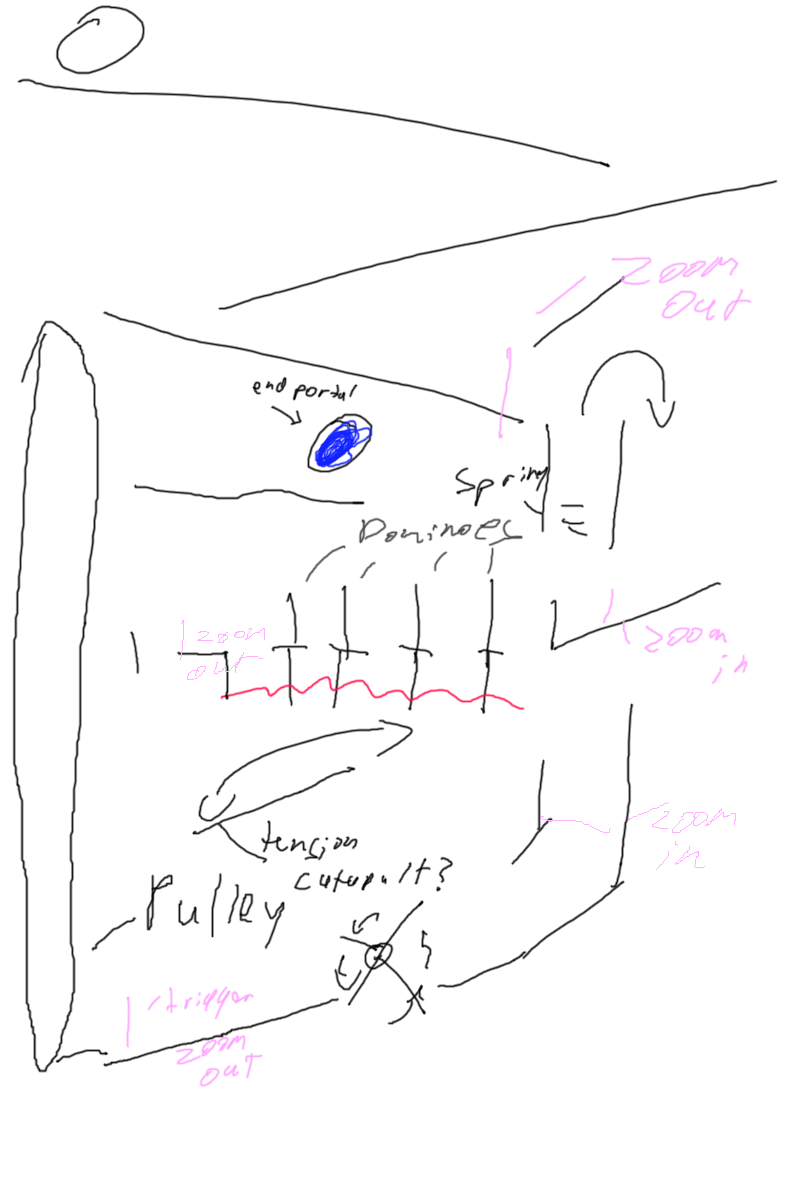 Zoom
out
end portal
Spring
Dominoes
zoom
out
zoom
in
tension
catapult?
zoom
in
Pulley
trigger
zoom
out